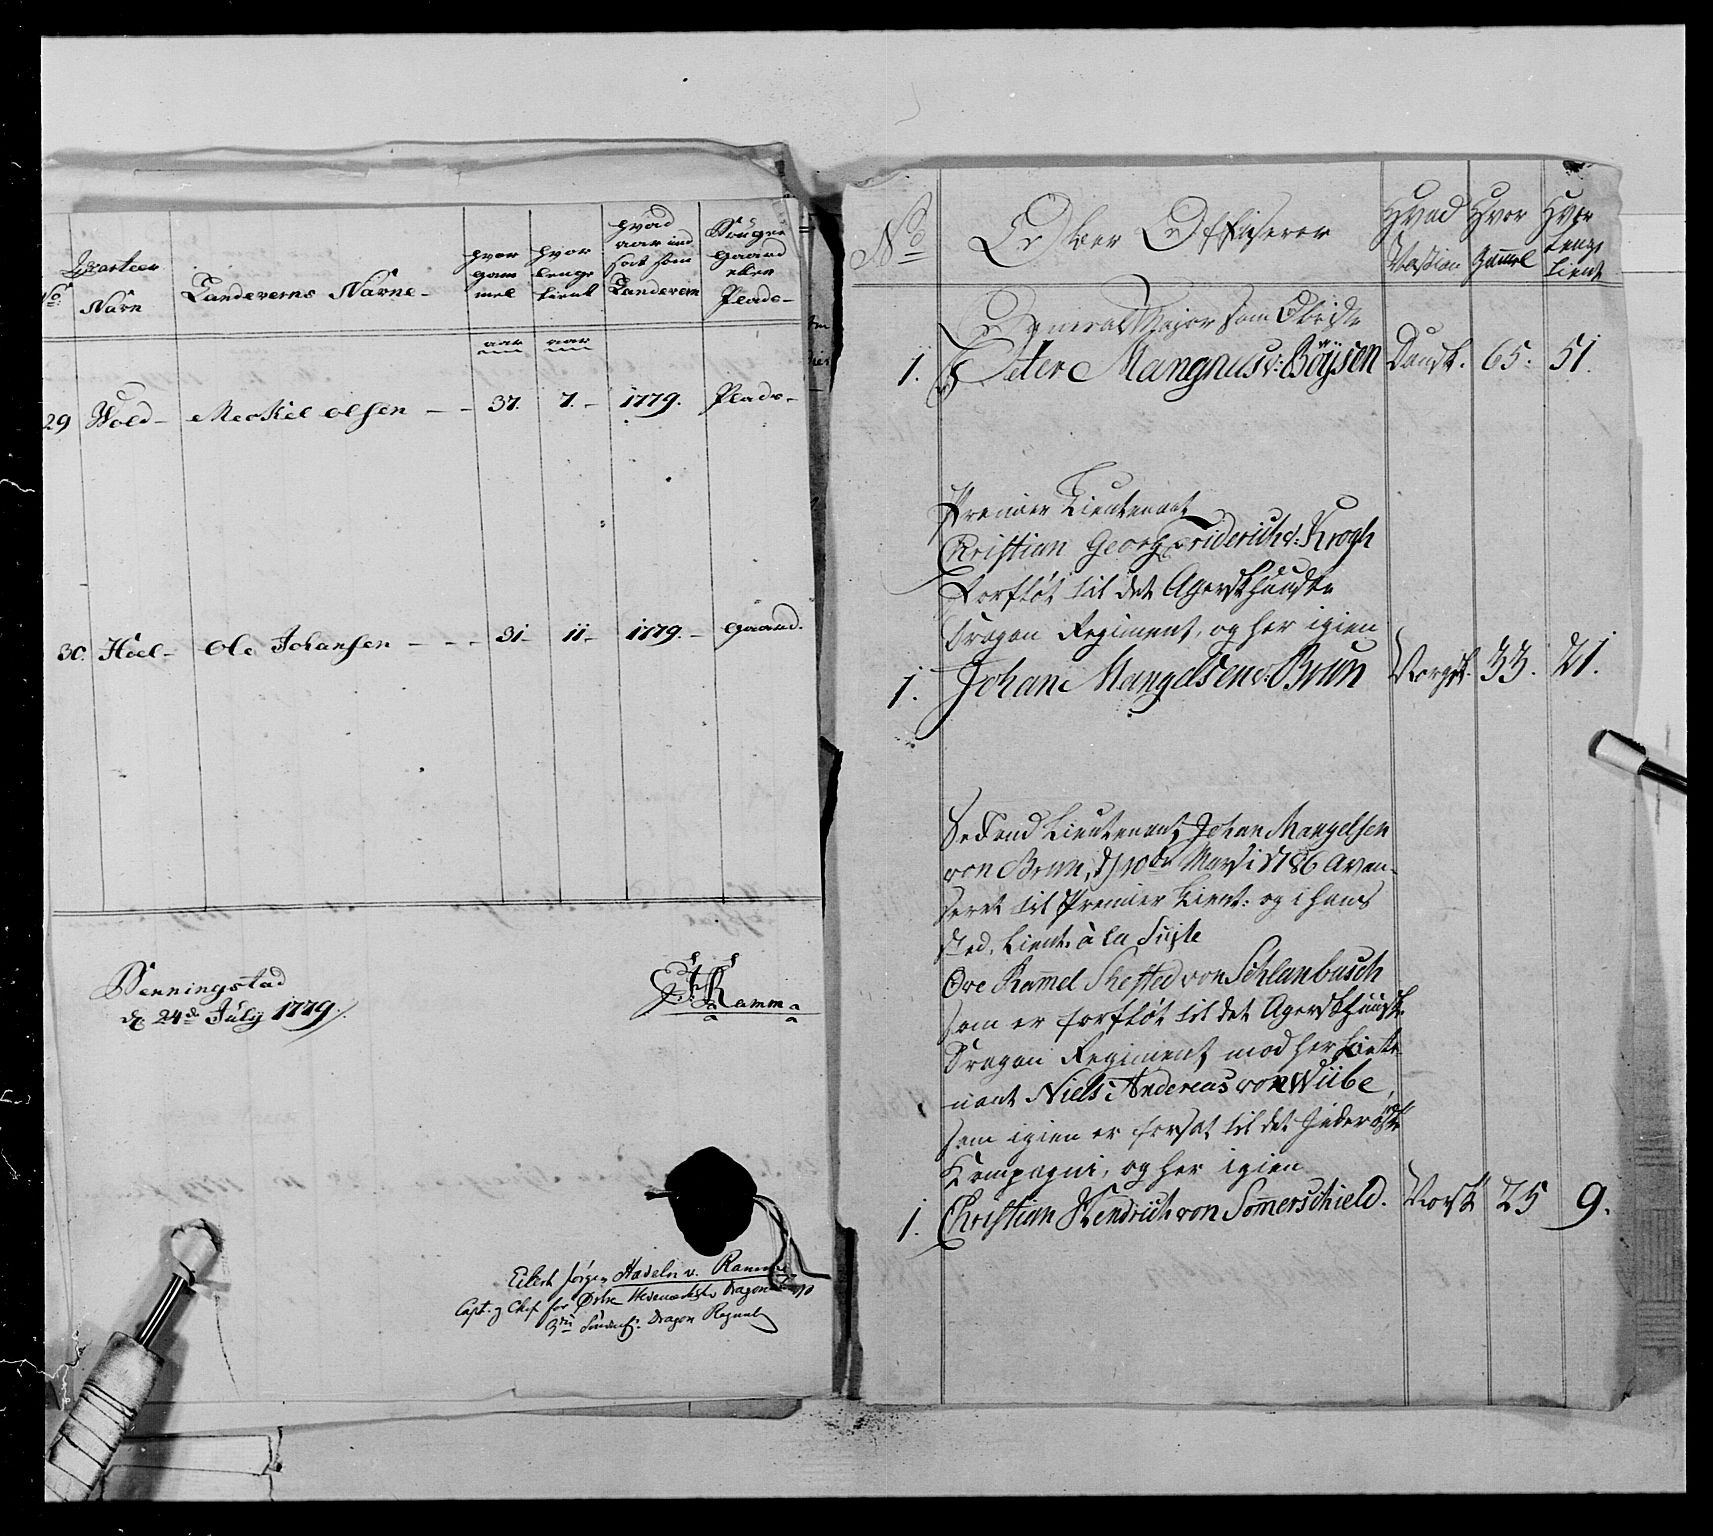 Qvarteer
No: Navn
Landeverns Navne-
hvor gam mel
hvor lenge tient
hvad aar ind sat som Landevern
Bruger gaard eller Plads-
aar aar
29 Wold- Meckel olsen - - 37. 7.- 1779. Plads-
30. Hoel- Ole Johansen - - - 31- 11- 1779.- gaard.
Benningstad
d 24de July 1779.
Ramm
Eilert Jørgen Hadeln v. Ramm
Capt. og Chef for Østre Hedemarkske Dragon
Dragon Regiment
No
Over Officerer
Hvad Nation
Hvor Gammel
Hvor lenge tient
General Major som Obriste
1. Peter Mangnus v: Böÿsen Dansk. 65. 51.
Premier Lieutenant
Christian Georg Friderich v: Krogh
Forflöt til det Agershuuske
Dragon Regiment, og her igien
1. Johan Mangelsen v: Brun Norsk. 33. 21.
Second Lieutenant Johan Mangelsen
von Brun, d 10de Marti 1786 Avan-
seret til Premier Lieut: og i hans
sted, Lieut: à la Suite
Ove Ramel Shested von Schlanbusch
som er forflöt til det Agershuuske
Dragon Regiment mod her Lieute-
nant Niels Andreas von Wiibe,
som igien er forsat til det Inderöeske
Kompagni, og her igien
1. Christian Hendrich von Somerschield. Norsk 25 9.